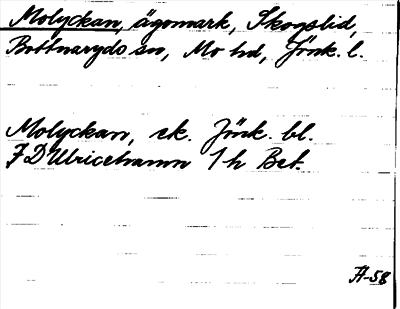 Molyckan, ägomark, Skogslid,
Bottnaryds sn, Mo hd, Jönk. l.
Molyckan, ek. Jönk. bl.
7 D Ulricehamn 1 h Bet.
Ä-58